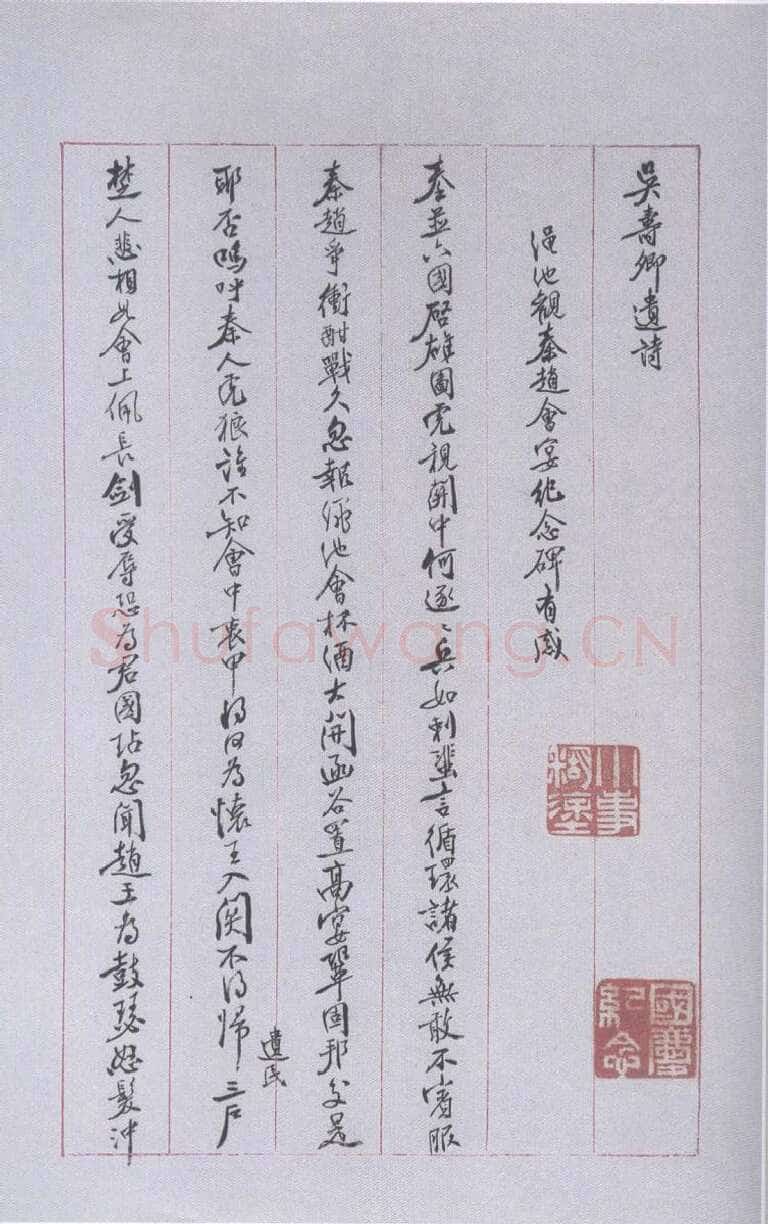 吳壽卿遺詩
澠池觀秦趙會宴紀念碑有感
秦並六國啓雄圖虎視關中何逐〻兵如利蜚言循環諸侯無敢不賓服
秦趙爭衡酣戰久忽報澠池會杯酒大開函谷置高宴鞏固邦交是
耶否嗚呼秦人虎狼誰不知會中衷甲為懷王入関不得歸三戶
遺民
楚人悲相如會上佩長劍受辱恐為君國玷忽聞趙王為鼓瑟怒髮沖
國慶紀念
Shufawang.CN